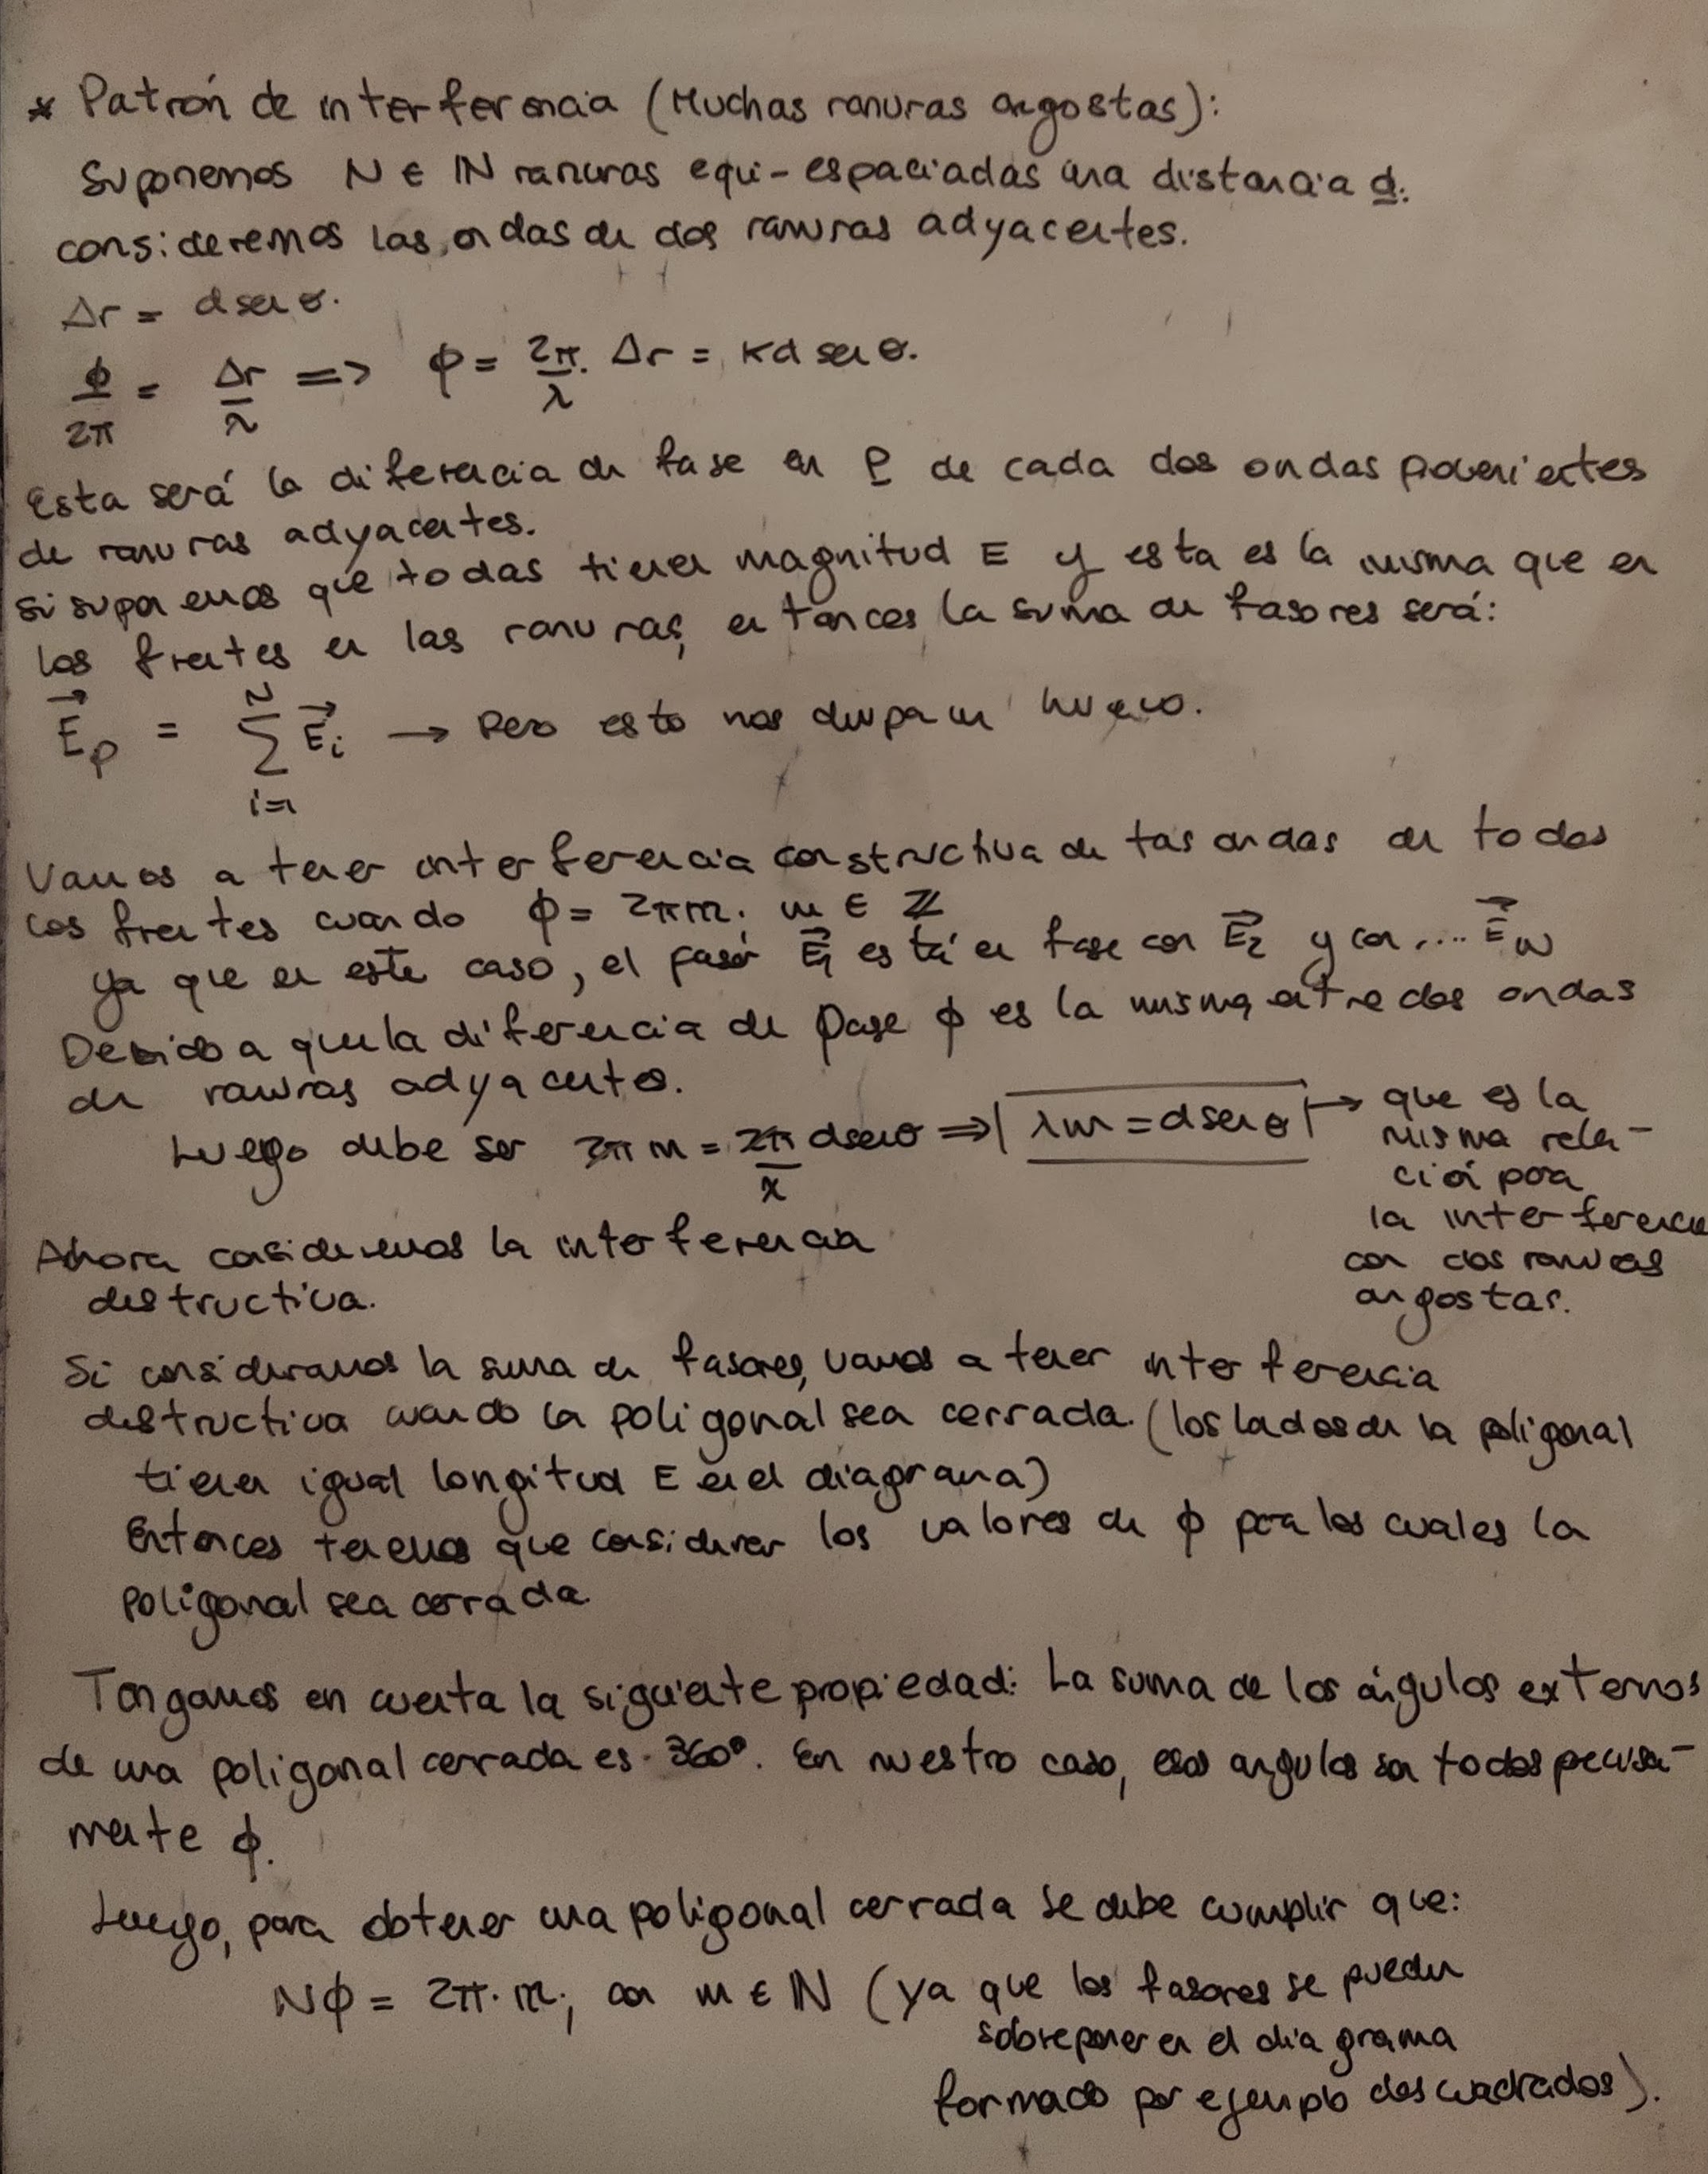 * Patrón de interferencia (Muchas ranuras angostas):
Suponemos N ∈ ℕ ranuras equi-espaciadas una distancia d.
consideremos las ondas de dos ranuras adyacentes.
Δr = d sen θ.
ϕ/2π = Δr/λ => ϕ = 2π/λ . Δr = kd sen θ.
Esta será la diferencia de fase en P de cada dos ondas provenientes
de ranuras adyacentes.
Si suponemos que todas tienen magnitud E y esta es la misma que en
los frentes en las ranuras, entonces la suma de fasores será:
E⃗p = ∑_{i=1}^{N} E⃗i → Pero esto nos
Vamos a tener interferencia constructiva de las ondas de todos
los frentes cuando ϕ = 2πm; m ∈ ℤ
ya que en este caso, el fasor E⃗1 está en fase con E⃗2 y con .... E⃗N
Debido a que la diferencia de fase ϕ es la misma entre dos ondas
de ranuras adyacentes.
Luego debe ser 2π m = 2π/λ d sen θ => λm = d sen θ → que es la
misma rela-
ción para
la interferencia
con dos ranuras
angostas.
Ahora consideremos la interferencia
destructiva.
Si consideramos la suma de fasores, vamos a tener interferencia
destructiva cuando la poligonal sea cerrada. (los lados de la poligonal
tienen igual longitud E en el diagrama)
Entonces tenemos que considerar los valores de ϕ para los cuales la
poligonal sea cerrada.
Tengamos en cuenta la siguiente propiedad: La suma de los ángulos externos
de una poligonal cerrada es 360°. En nuestro caso, esos angulos son todos precisa-
mente ϕ.
Luego, para obtener una poligonal cerrada se debe cumplir que:
Nϕ = 2π.m; con m ∈ ℕ (ya que los fasores se pueden
sobreponer en el diagrama
formado por ejemplo dos cuadrados).